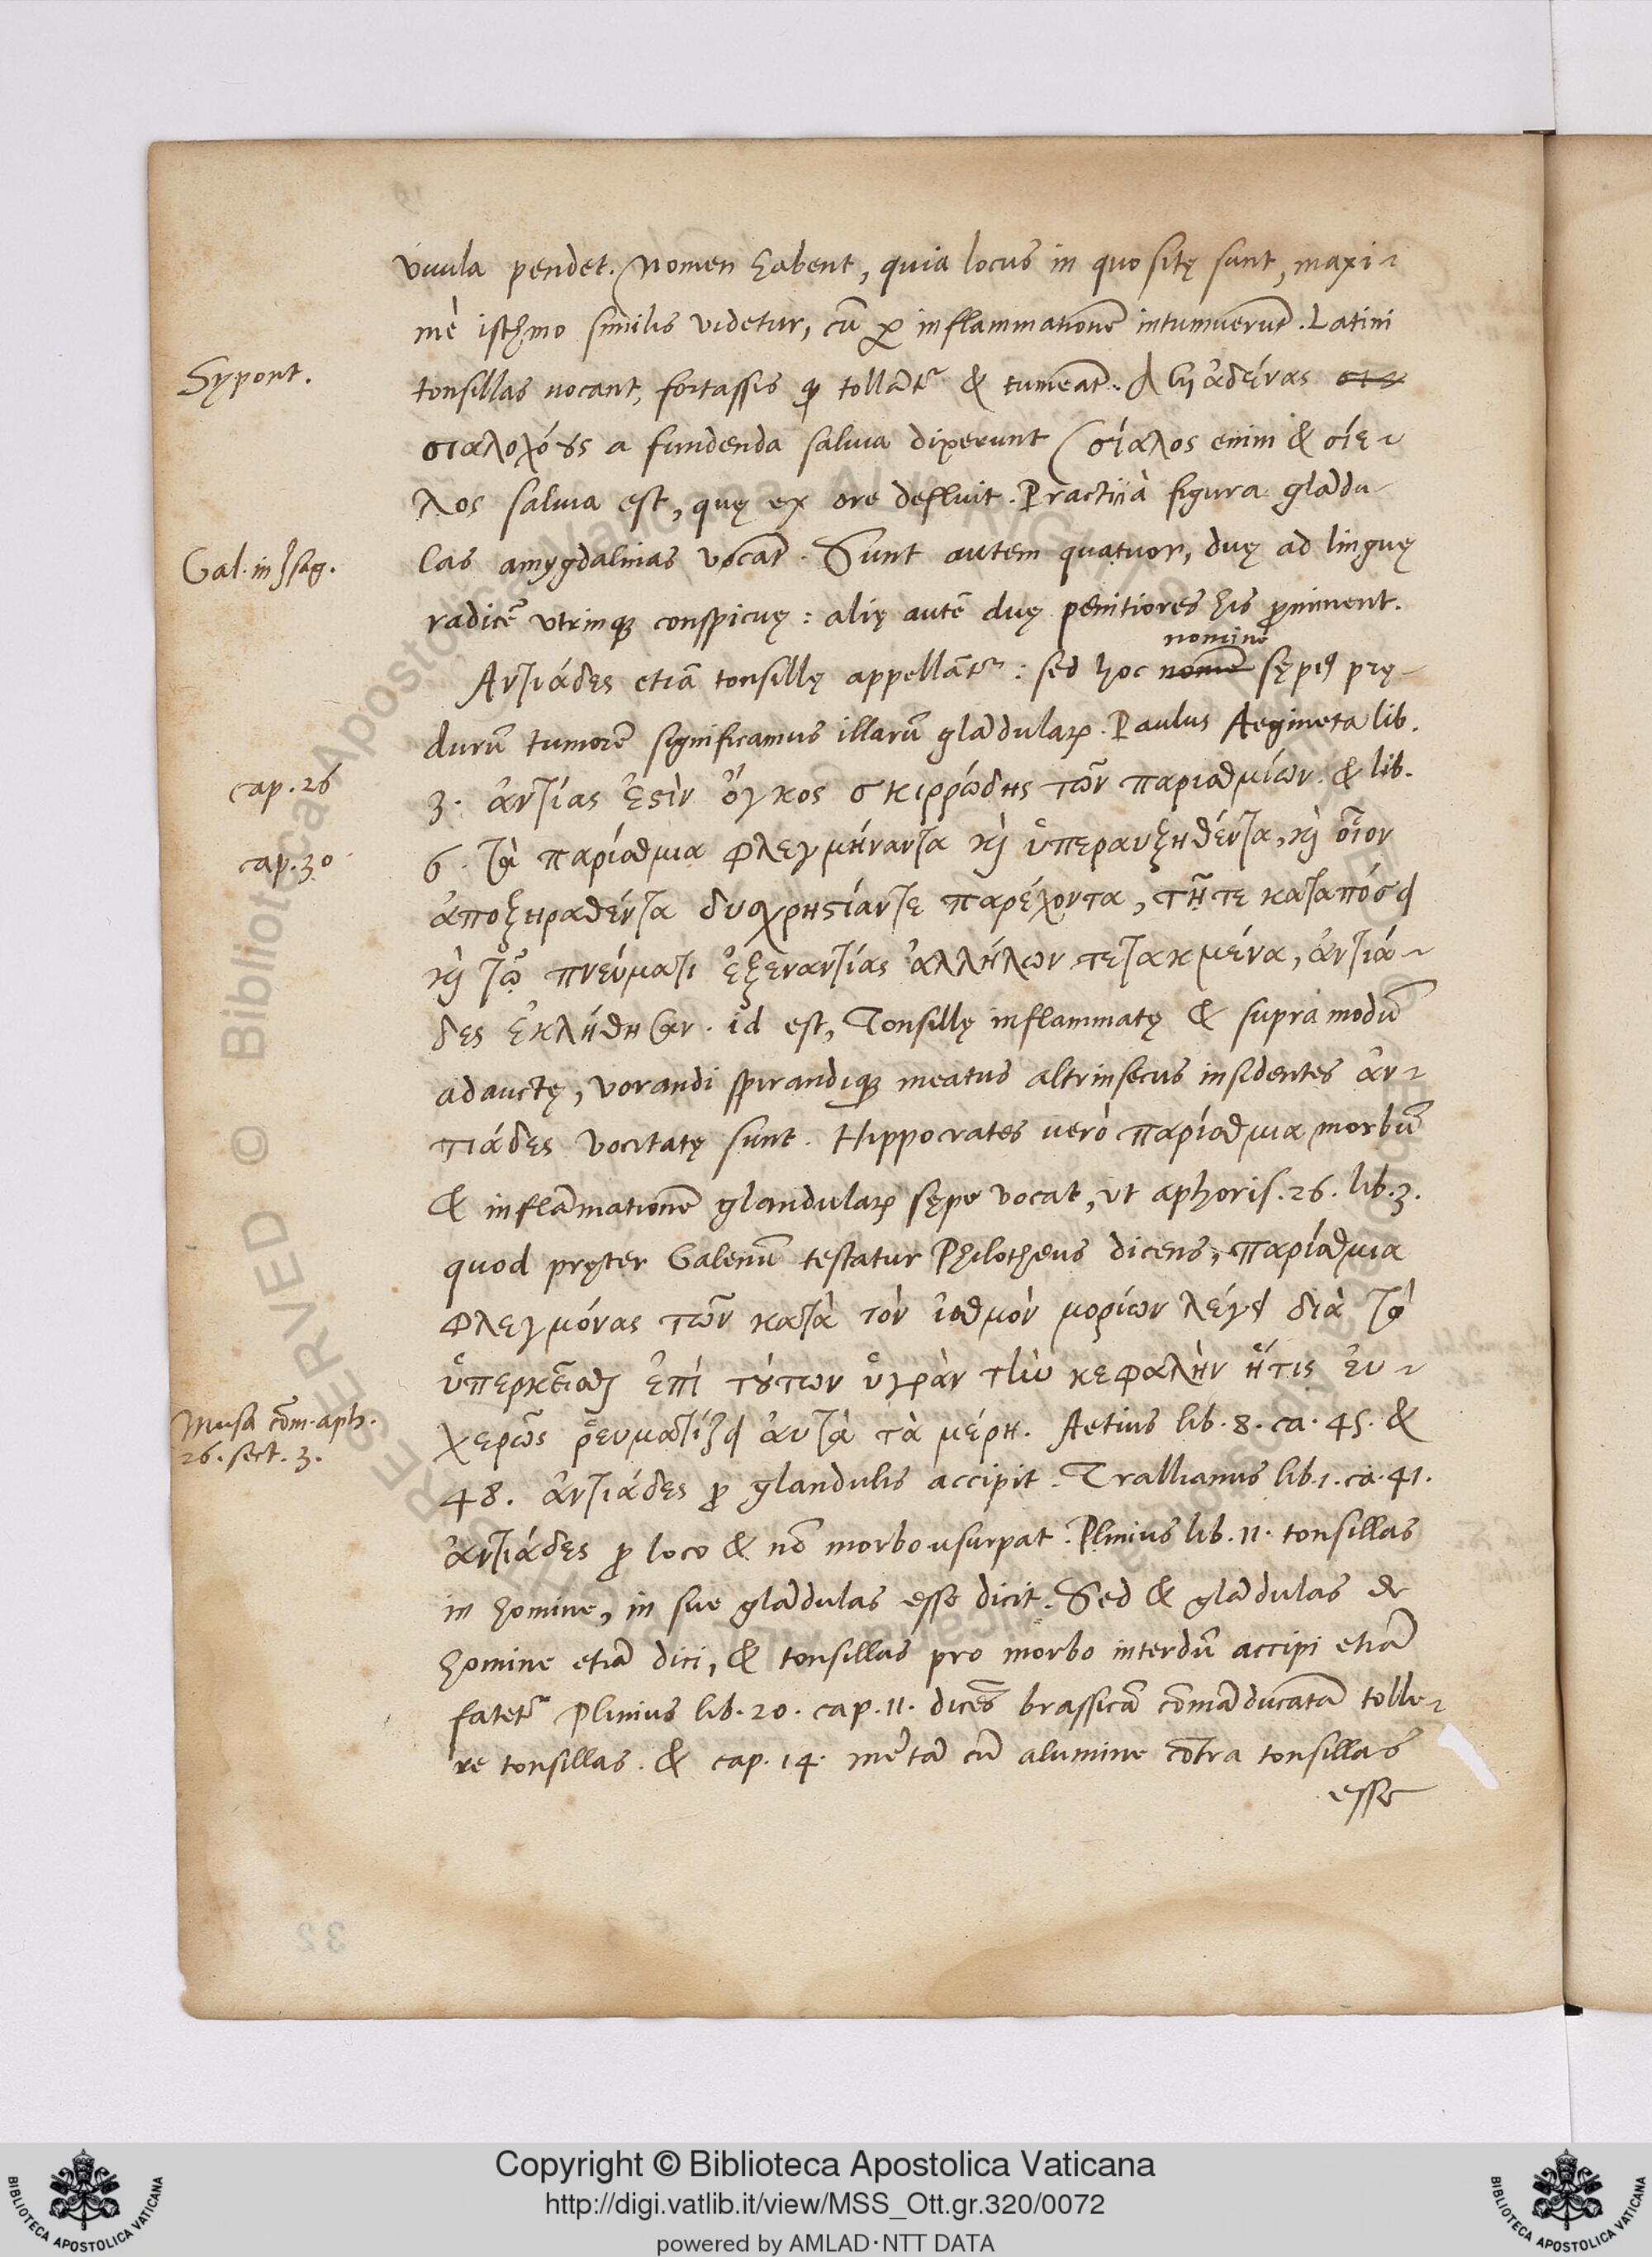 vuula pendet. Nomen habent, quia locus in quo sitę sunt, maxi-
mè isthmo similis videtur, cū ꝑ inflammationē intumuerūt. Latini
Sypont.
tonsillas uocant, fortassis ꝙ tollātr̄ & tumeāt. Alij ἀδένας
σιαλοχόȣς a fundenda saliua dixerunt (σίαλος enim & σίε-
λος saliua est, quę ex ore defluit. Practici à figura glādu-
Gal. in Isag.
las amygdalinas vocāt. Sunt autem quatuor, duę ad linguę
radicē vtrinqꝫ conspicuę: alię autē duę penitiores his ꝓminent.
nomine
Ἀντιάδες etiā tonsillę appellātr̄: sed hoc nomē sępiꝰ prę-
durū tumorē significamus illarū glādularꝝ. Paulus Aegineta lib.
cap. 26
3. ἀντίας ἐϛὶν ὄγκος σκιρρώδης τῶν παρισθμίων. & lib.
cap. 30
6. τὰ παρίσθμια φλεγμήναντα κὶ ὑπεραυξηθέντα, κὶ οἷον
ἀποξηραθέντα δυσχρηϛίαντε παρέχοντα, τῆ τε καταπόσει
κὶ τῶ πνεύματι ἐξεναντίας ἀλλήλων τεταγμένα, ἀντιά-
δες ἐκλήθησαν. id est, Tonsillę inflammatę & supra modū
adauctę, vorandi spirandiqꝫ meatus altrinsecus insidentes ἀν-
τιάδες vocitatę sunt. Hippocrates uerò παρίσθμια morbū
& inflāmationē glandularꝝ sępe vocat, ut aphoris. 26. lib. 3.
quod pręter Galenū testatur Philotheus dicens, παρίσθμια
φλεγμόνας τῶν κατὰ τὸν ἰσθμὸν μορίων λέγει διὰ τὸ
ὑπερκεῖσθαι ἐπὶ τȣ́των ὑγρὰν τὴν κεφαλὴν ἥτις ἐυ-
Musa cōm. aph.
26. sect. 3.
χερῶς ῥευματίζει ἀυτὰ τὰ μέρη. Aetius lib. 8. ca. 45. &
48. ἀντιάδες ꝓ glandulis accipit. Trallianus lib. 1. ca. 41.
ἀντιάδες ꝓ loco & nō morbo usurpat. Plinius lib. 11. tonsillas
in homine, in sue glādulas esse dicit. Sed & glādulas de
homine etiā dici, & tonsillas pro morbo interdū accipi etiā
fatetr̄ Plinius lib. 20. cap. 11. dicēs brassicā cōmāducatā tolle-
re tonsillas. & cap. 14. mētā cū alumine cōtra tonsillas
esse
32
Copyright © Biblioteca Apostolica Vaticana
http://digi.vatlib.it/view/MSS_Ott.gr.320/0072
powered by AMLAD·NTT DATA
BIBLIOTECA APOSTOLICA VATICANA
BIBLIOTECA APOSTOLICA VATICANA